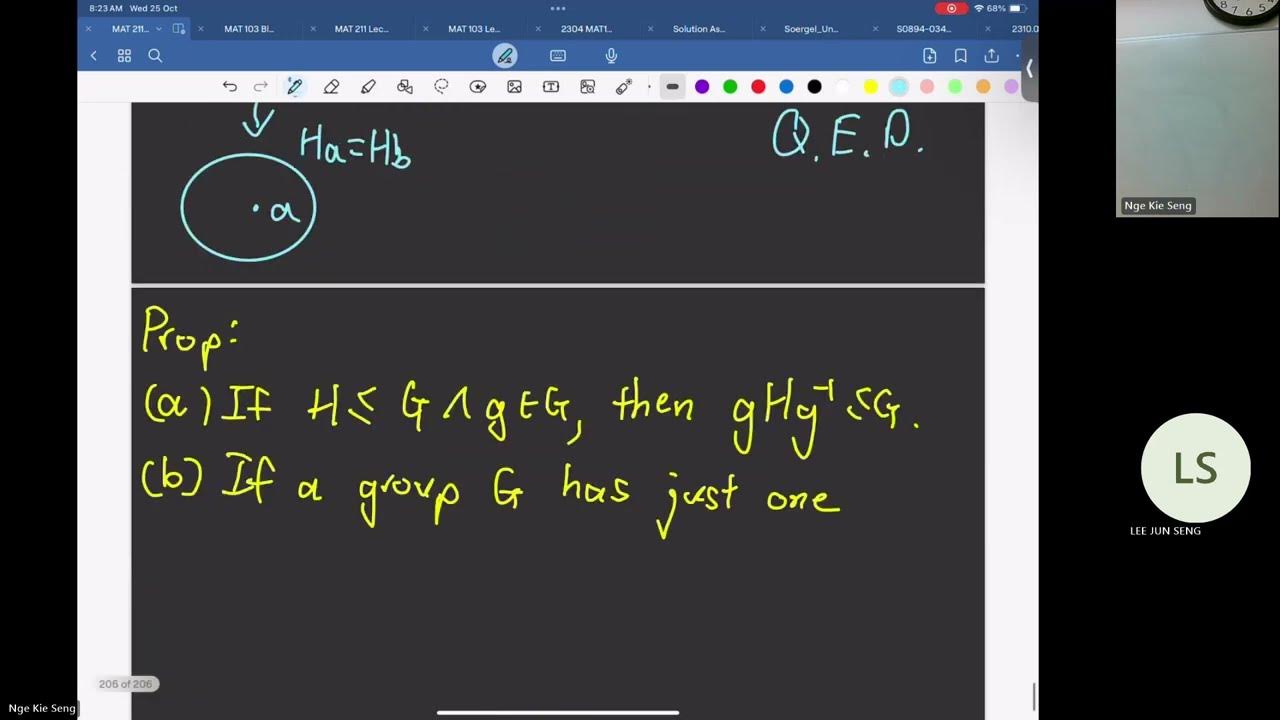 8:23 AM Wed 25 Oct
68%
MAT 211...
MAT 103 Bl...
MAT 211 Lec...
MAT 103 Le...
2304 MAT1...
Solution As...
Soergel_Un...
S0894-034...
2310.0
Ha=Hb
Q.E.D.
a
Nge Kie Seng
Prop:
(a) If H ≤ G ∧ g ∈ G, then gHg⁻¹ ≤ G.
(b) If a group G has just one
LS
LEE JUN SENG
206 of 206
Nge Kie Seng